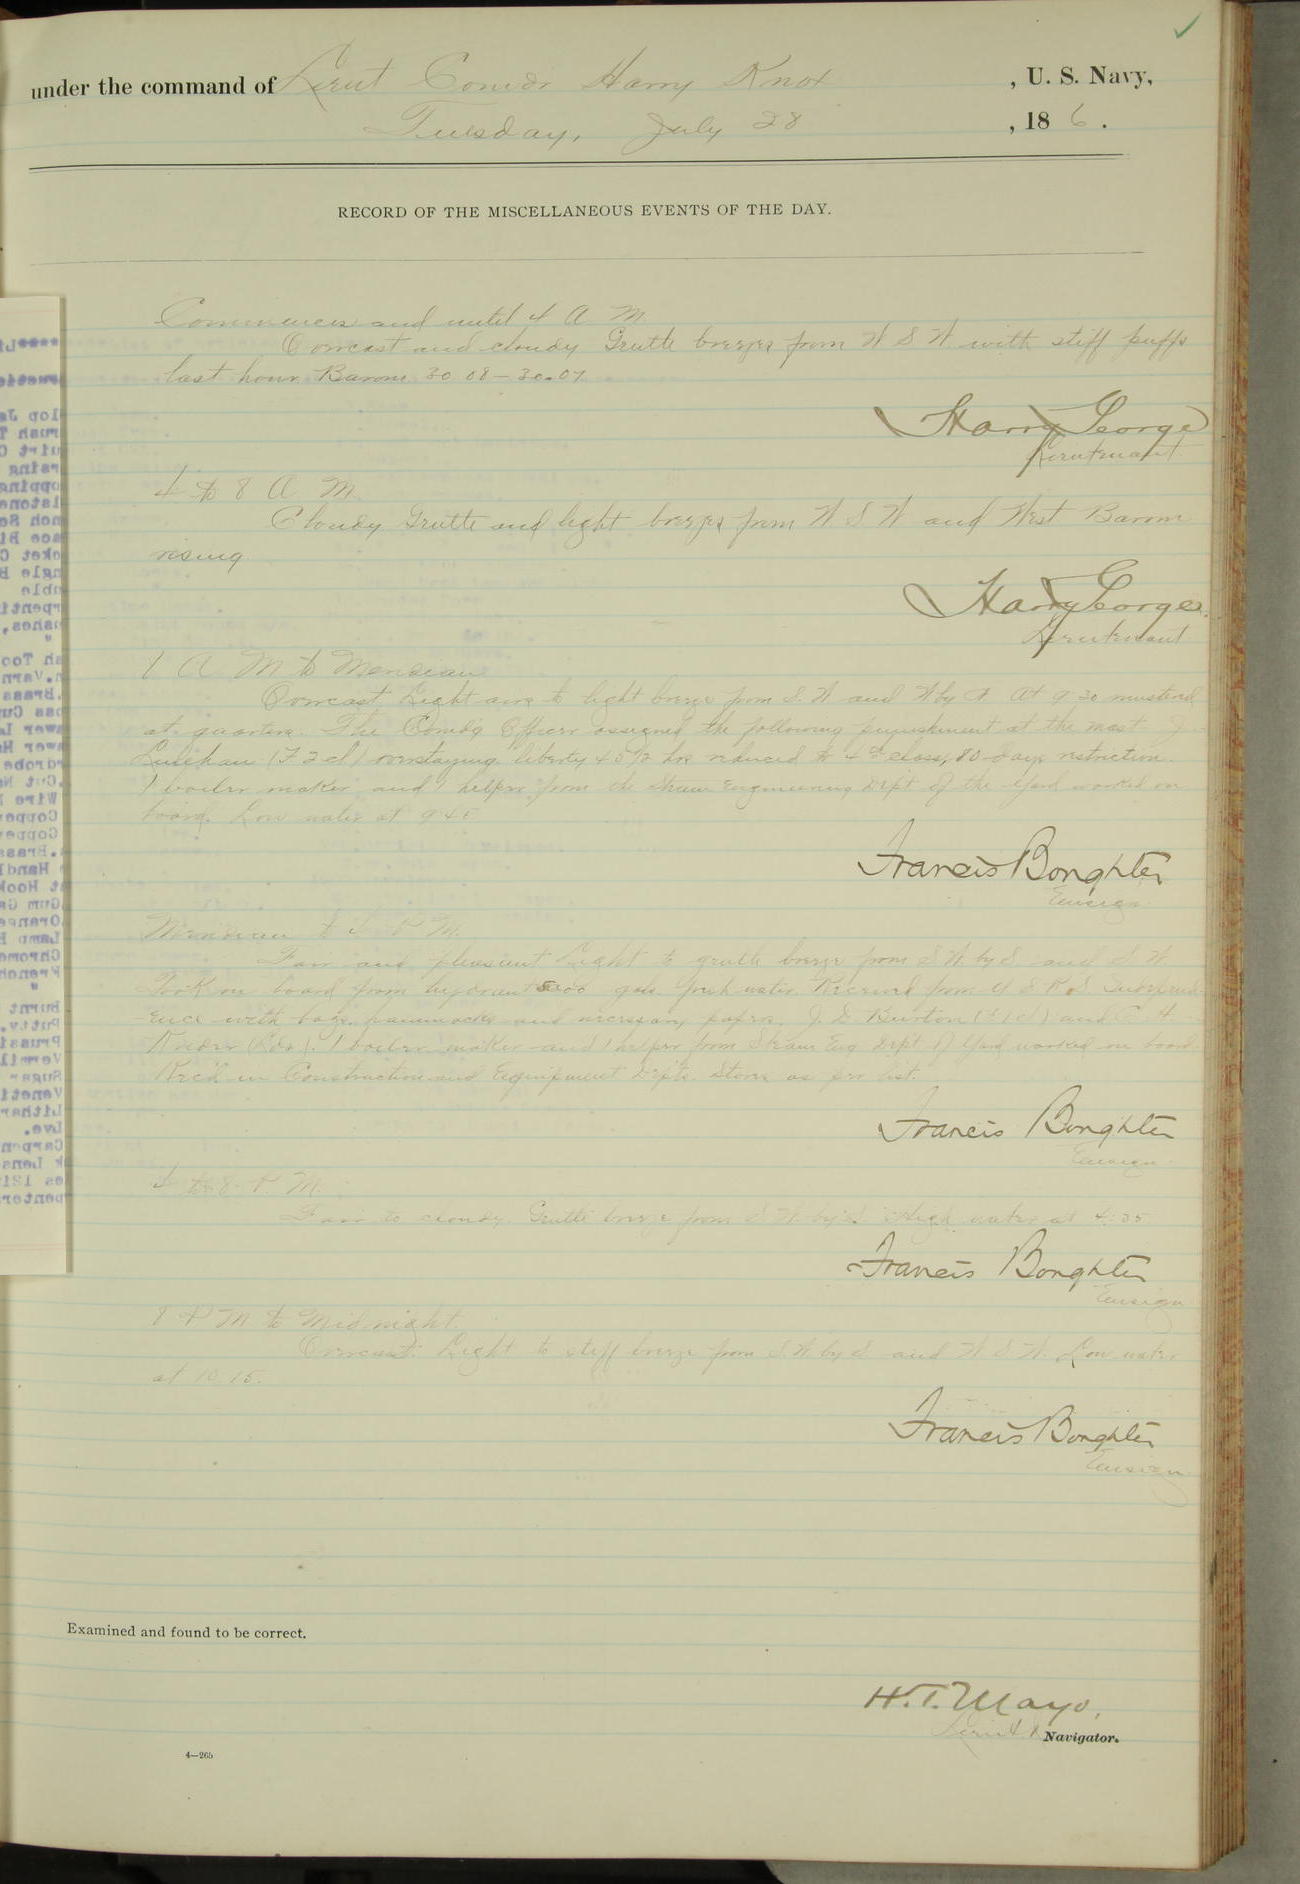 under the command of Lieut Comdr Harry Knox, U. S. Navy,
Tuesday, July 28, 186.
RECORD OF THE MISCELLANEOUS EVENTS OF THE DAY.
Commences and until 4 A M
Overcast and cloudy Gentle breezes from W S W with stiff puffs
last hour Barom 30 08 – 30.07
Harry George
Lieutenant
4 to 8 A M.
Cloudy Gentle and light breezes from W S W and West Barom
rising
Harry George
Lieutenant
8 A M to Meridian
Overcast Light airs to light breeze from S. W and W by At 9 30 mustered
at quarters. The Comd'g Officer assigned the following punishment at the mast J
Linehan (F 2 cl) overstaying liberty 45½ hrs reduced to 4th class, 80 days restriction.
1 boiler maker and 1 helper from the Steam Engineering Dept of the Yard worked on
board. Low water at 9 45
Francis Boughter
Ensign
Meridian to 4 P M.
Fair and pleasant Light to gentle breeze from S W. by S and S W.
Took on board from hydrant 5000 gals fresh water. Received from U S R S Independ-
-ence with bags, hammocks and necessary papers. J. D. Burton and C. H.
1 boiler maker and 1 helper from Steam Eng Dept of Yard worked on board.
Rec'd in Construction and Equipment Depts. Stores as per list.
Francis Boughter
Ensign
4 to 8 P. M.
Fair to cloudy. Gentle breeze from S W by S. High water at 4:35
Francis Boughter
Ensign
8 P M to Midnight.
Overcast. Light to stiff breeze from S. W by S and W S W. Low water
at 10 15.
Francis Boughter
Ensign
Examined and found to be correct.
H. T. Mayo,
Lieut. Navigator.
4—265